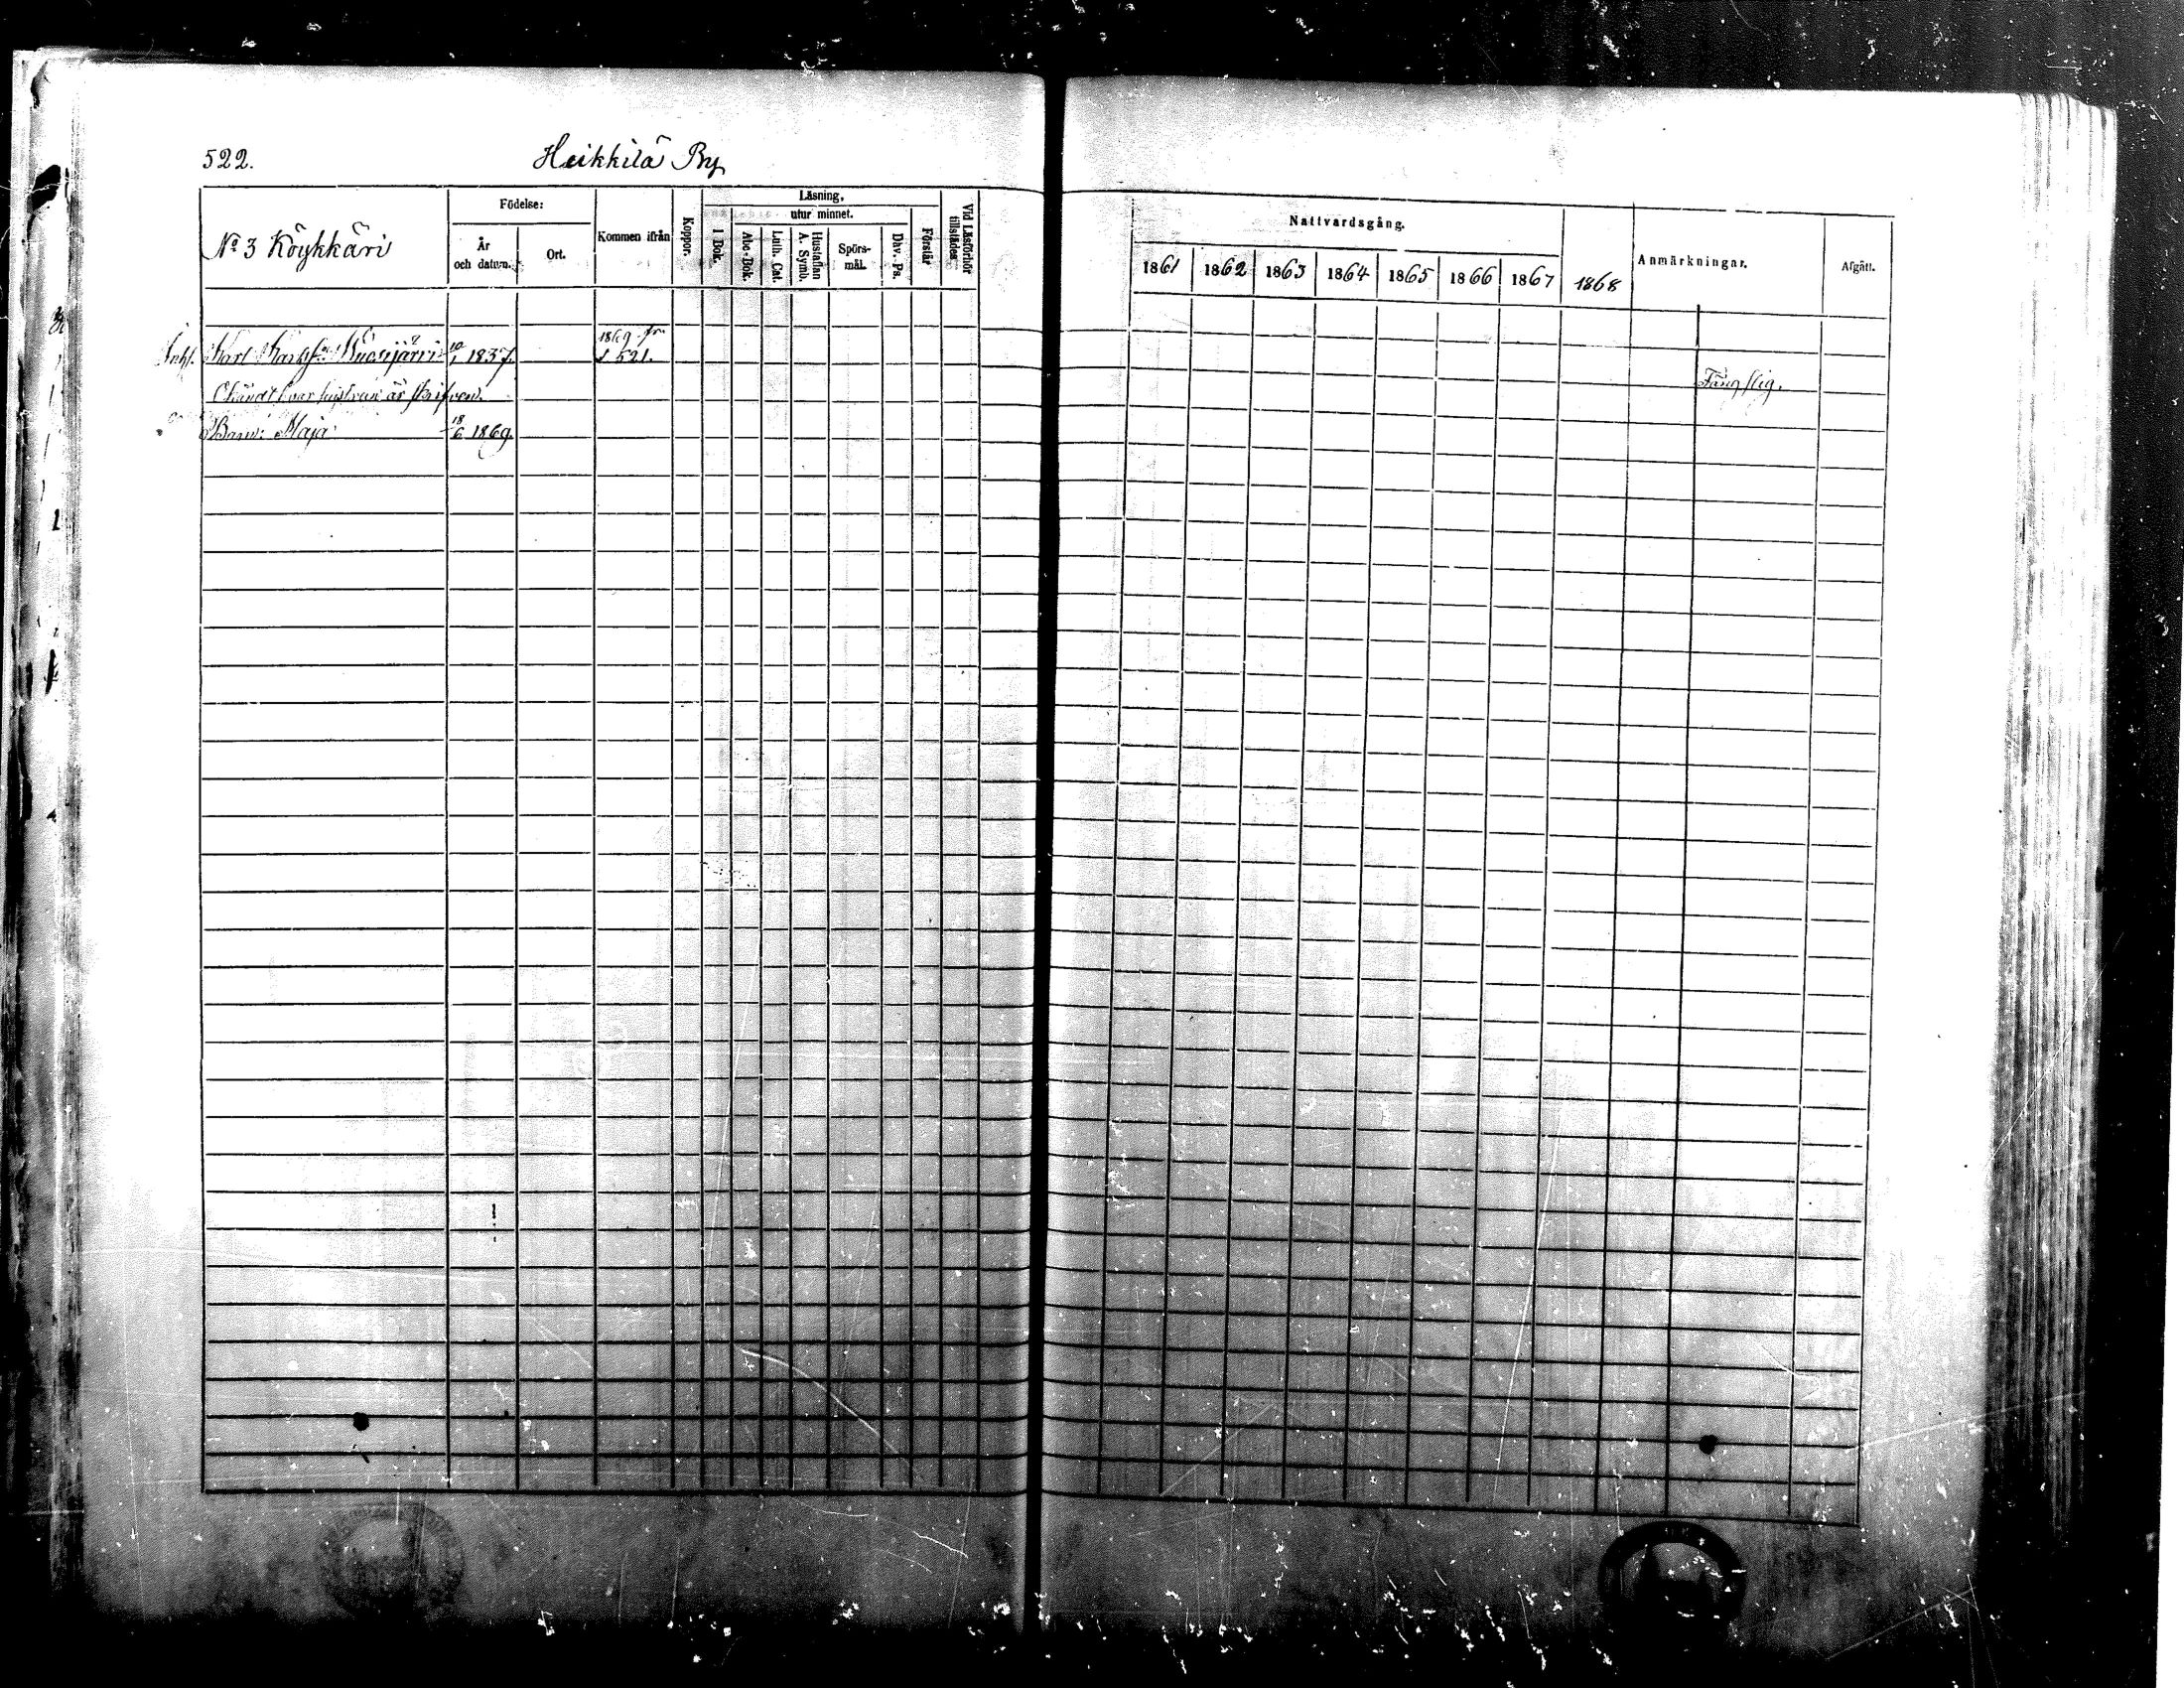 522.
Heikkilä By
No 3 Köykkäri
Födelse:
År
och datum.
Ort.
Kommen ifrån
Koppor.
Läsning,
utur minnet.
I Bok.
Abc-Bok.
Luth. Cat.
Hustaflan
A. Symb.
Spörs-
mål.
Dav. Ps.
Förstår
Vid Läsförhör
tillstädes
Nattvardsgång.
1861 1862 1863 1864 1865 1866 1867 1868
Anmärkningar.
Afgått.
Inh. Karl Karlss. Kuusijärvi 10/1 1837. 1869 fr. s 521.
Okändt hvar hustrun är skrifven.
Fängslig.
Barn: Maja 18/6 1869.